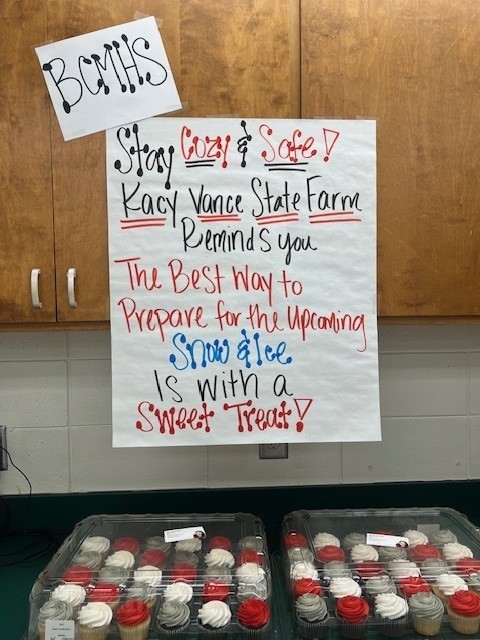 BCMHS
Stay Cozy & Safe!
Kacy Vance State Farm
Reminds you
The Best Way to
Prepare for the Upcoming
Snow & Ice
Is with a
Sweet Treat!